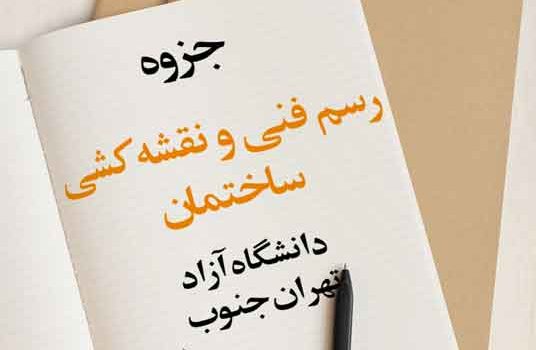 جزوه
رسم فنی و نقشه کشی
ساختمان
دانشگاه آزاد
تهران جنوب